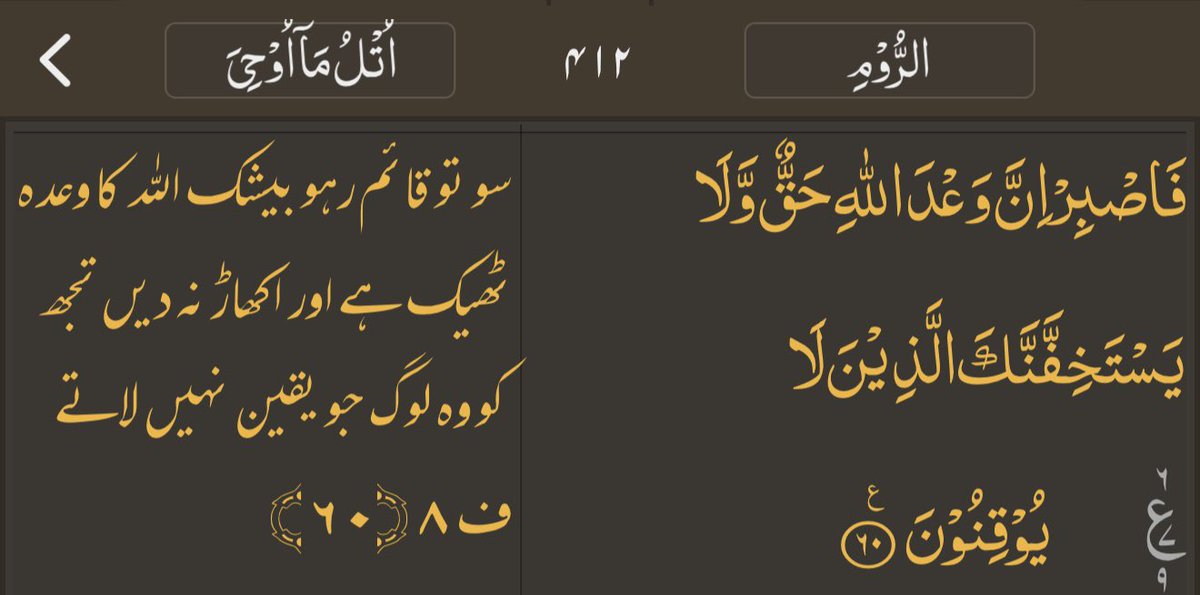 الرُّوْمِ
٤١٢
اُتْلُ مَاۤ اُوْحِیَ
فَاصْبِرْ اِنَّ وَعْدَ اللّٰهِ حَقٌّ وَّلَا
یَسْتَخِفَّنَّكَ الَّذِیْنَ لَا
یُوْقِنُوْنَ ۟ع ٦٠
٢
ع
٧
٩
سو تو قائم رہو بیشک اللہ کا وعدہ
ٹھیک ہے اور اکھاڑ نہ دیں تجھ
کو وہ لوگ جو یقین نہیں لاتے
ف ٨ ﴿٦٠﴾